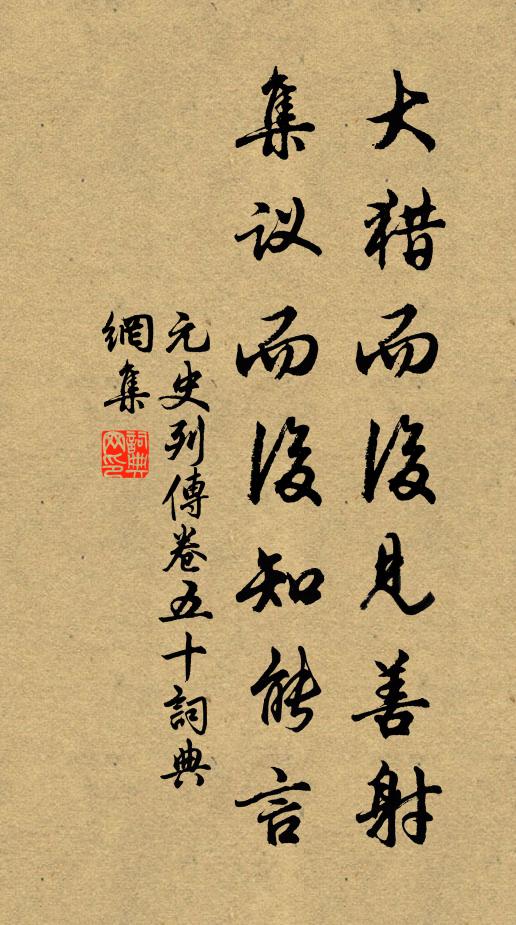 大猎而後見善射
集议而後知能言
元史列傳卷五十詞典
網集
詞典網印